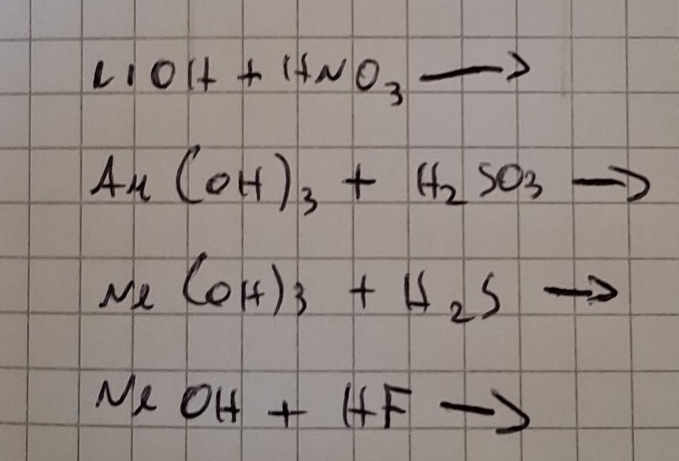 LiOH + HNO₃ →
Au(OH)₃ + H₂SO₃ →
Ne(OH)₃ + H₂S →
NeOH + HF →